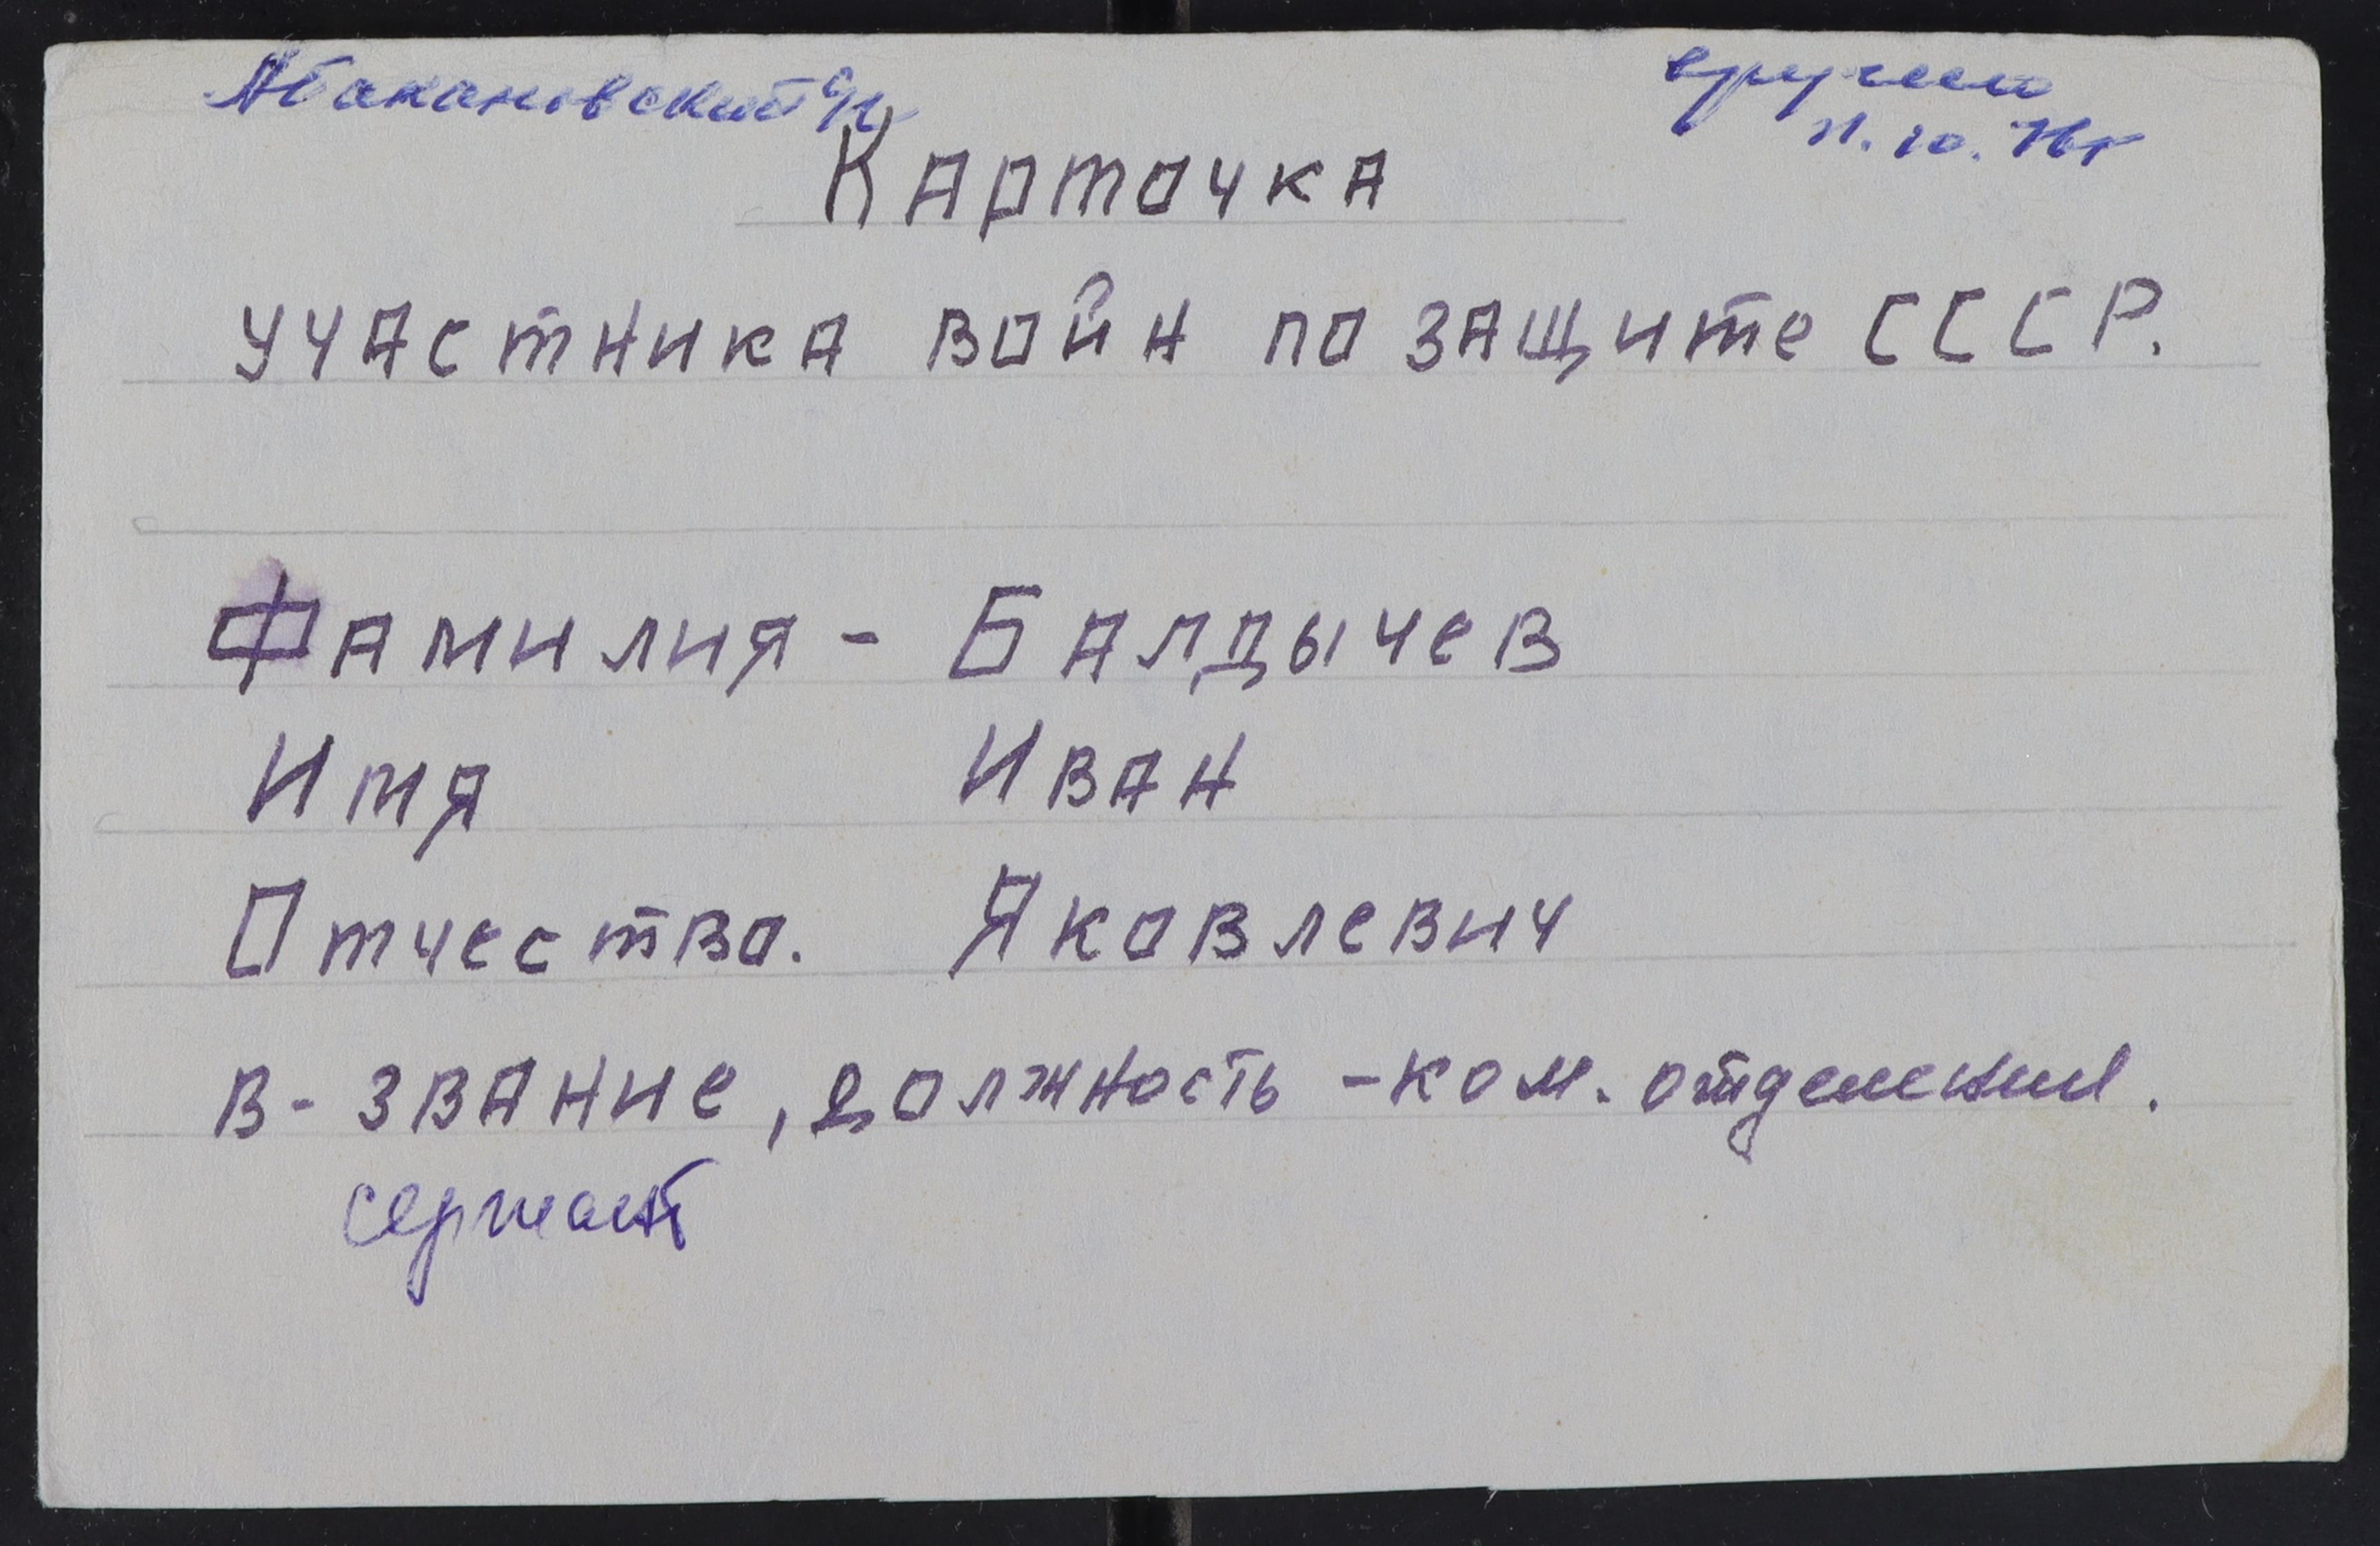 Абакановский с/с
вручено
21.10.76г
Карточка
участника войн по защите СССР.
Фамилия - Балдычев
Имя Иван
Отчество. Яковлевич
в-звание, должность - ком. отделения.
сержант